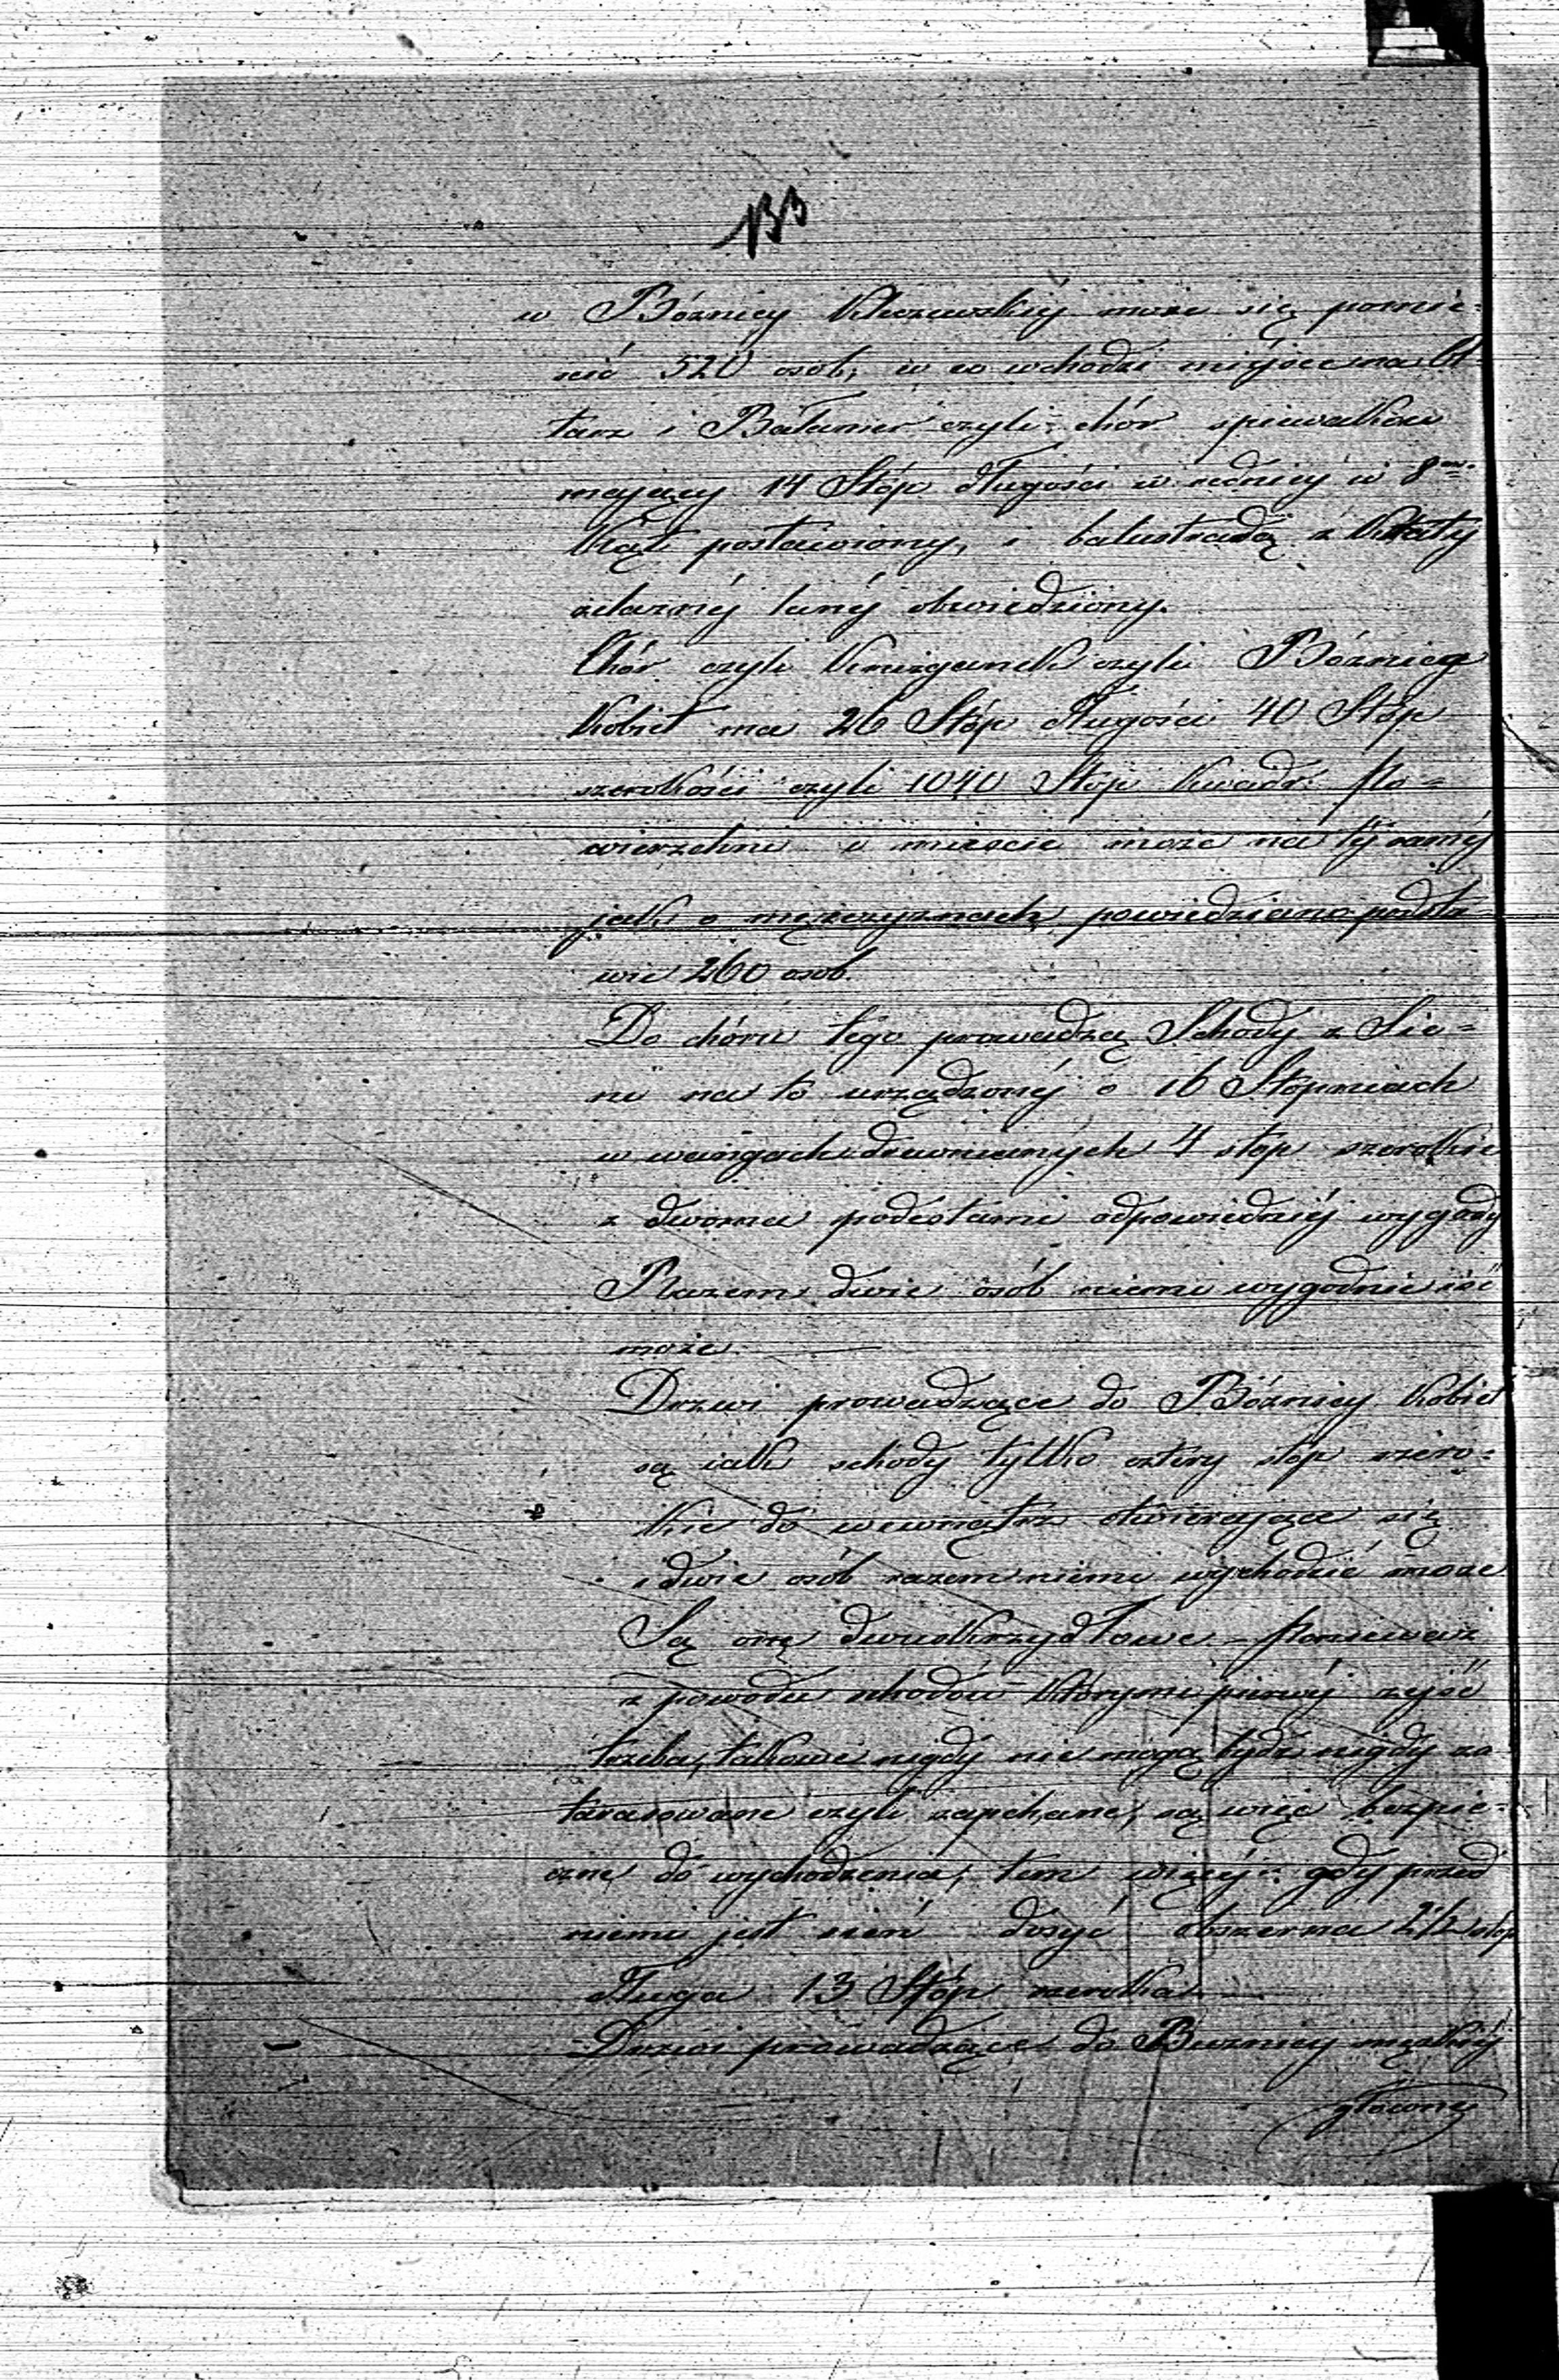 133
w Bóżnicy Kleczewskiéj może się pomie-
ścić 520 osób, w co wchodzi miejsce na Oł-
tarz i Bałamer czyli chór spiewaków
mający 14 Stóp długości w srednicy w 8em
Kąt postawiony, i balustradą z Kraty
żelaznéj lanéj obwiedziony.
Chór czyli Kruzganek czyli Bóżnica
Kobiet ma 26 Stóp długości 40 Stóp
szerokości czyli 1040 Stóp Kwadr: Po=
wierzchni i mieścić może na téj saméj
jak o mężczyznach powiedziano podsta-
wie 260 osób.
Do chóru tego prowadzą Schody z Sie=
ni na to urządzonéj o 16 Stopniach
w wangach drewnianych 4 stop szerokie
z dwoma podestami odpowiedniéj wygody
Razem dwie osób niemi wygodnie iść
może.
Drzwi prowadzące do Bóżnicy Kobiet
są jak schody tylko cztery stóp szero-
kie do wewnątrz otwierające się
i dwie osób razem niemi wychodzić może
Są one dwuskrzydłowe. – Ponieważ
z powodu schodów którymi pierwéj zejść
trzeba, takowe nigdy nie mogą bydź nigdy za
tarasowane czyli zapchane, są więc bezpie-
czne do wychodzenia, tem więcéj gdy przed
niemi jest sień dosyć obszerna 21/2 stóp
długa 13 Stóp szeroka. —
Drzwi prowadzące do Buznicy męzkiéj
główny